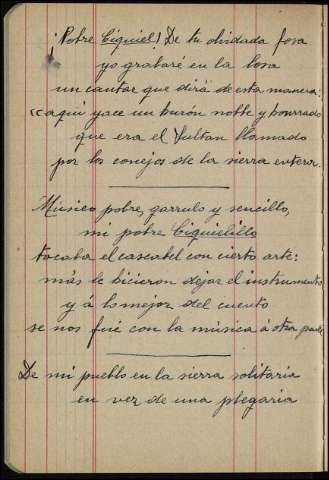 ¡Pobre Ciquiel! De tu olvidada fosa
yo grabaré en la losa
un cantar que dirá de esta manera:
"aquí yace un hurón noble y honrado
que era el Sultan llamado
por los conejos de la sierra entera.
Músico pobre, garrulo y sencillo,
mi pobre Ciquielillo
tocaba el cascabel con cierto arte:
más le hicieron dejar el instrumento
y á lo mejor del cuento
se nos fué con la música á otra parte
De mi pueblo en la sierra solitaria
en vez de una plegaria